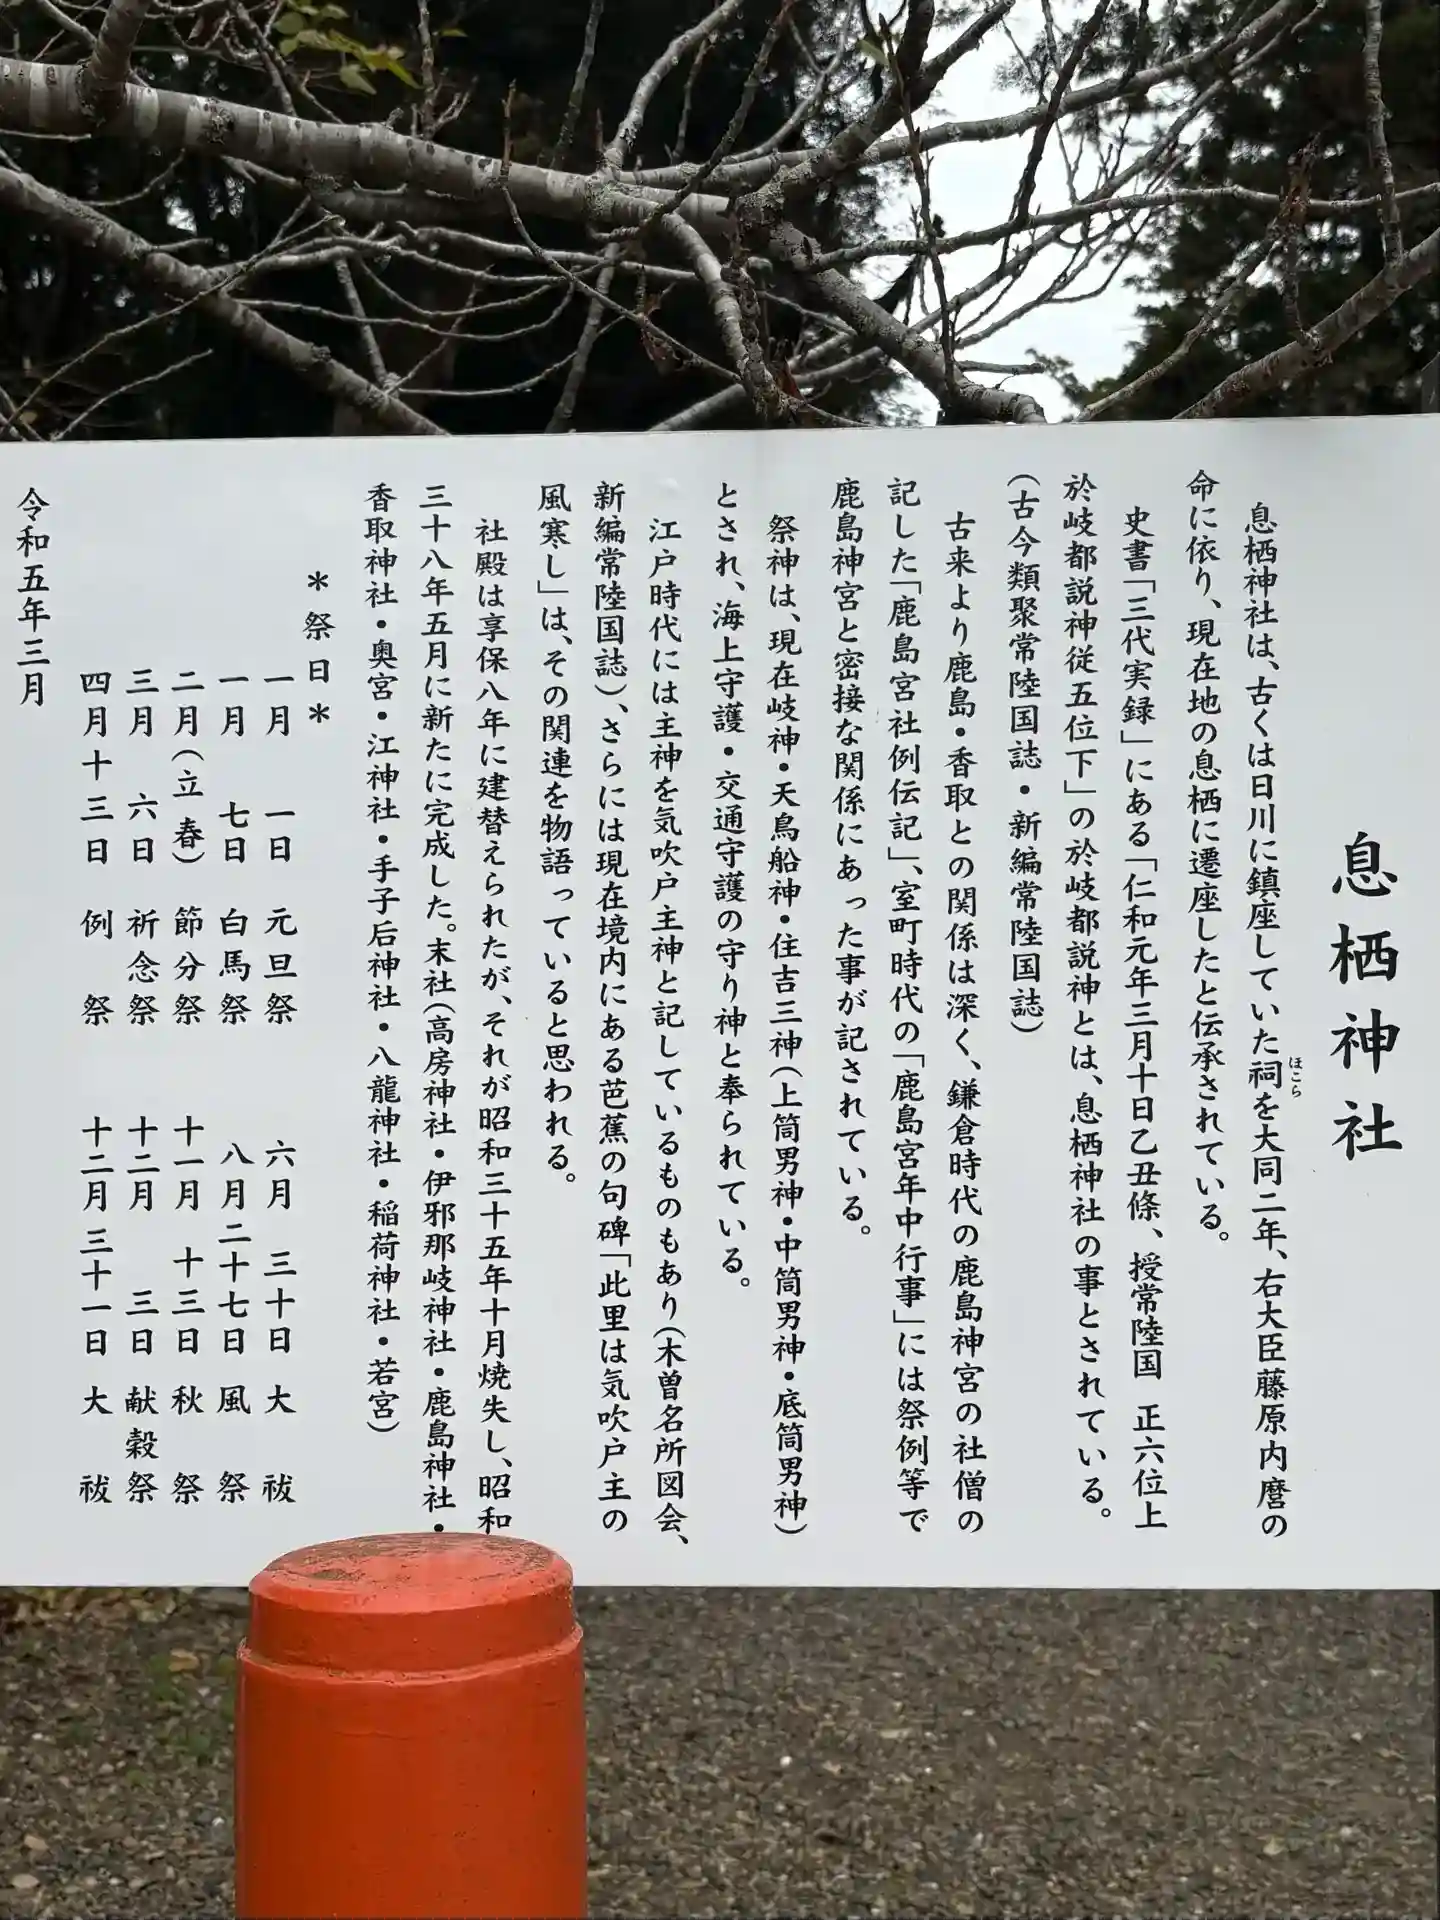 息栖神社
息栖神社は、古くは日川に鎮座していた祠を大同二年、右大臣藤原内麿の
ほこら
命に依り、現在地の息栖に遷座したと伝承されている。
史書「三代実録」にある「仁和元年三月十日乙丑條、授常陸国 正六位上
於岐都説神従五位下」の於岐都説神とは、息栖神社の事とされている。
(古今類聚常陸国誌・新編常陸国誌)
古来より鹿島・香取との関係は深く、鎌倉時代の鹿島神宮の社僧の
記した「鹿島宮社例伝記」、室町時代の「鹿島宮年中行事」には祭例等で
鹿島神宮と密接な関係にあった事が記されている。
祭神は、現在岐神・天鳥船神・住吉三神(上筒男神・中筒男神・底筒男神)
とされ、海上守護・交通守護の守り神と奉られている。
江戸時代には主神を気吹戸主神と記しているものもあり(木曽名所図会、
新編常陸国誌)、さらには現在境内にある芭蕉の句碑「此里は気吹戸主の
風寒し」は、その関連を物語っていると思われる。
社殿は享保八年に建替えられたが、それが昭和三十五年十月焼失し、昭和
三十八年五月に新たに完成した。末社(高房神社・伊邪那岐神社・鹿島神社・
香取神社・奥宮・江神社・手子后神社・八龍神社・稲荷神社・若宮)
*祭日*
一月 一日 元旦祭 六月 三十日 大祓
一月 七日 白馬祭 八月二十七日 風祭
二月(立春) 節分祭 十一月 十三日 秋祭
三月 六日 祈念祭 十二月 三日 献穀祭
四月十三日 例祭 十二月三十一日 大祓
令和五年三月